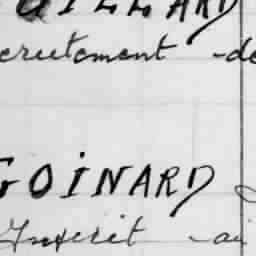 UILLARD
crutement - de
GOINARD
Inscrit - au